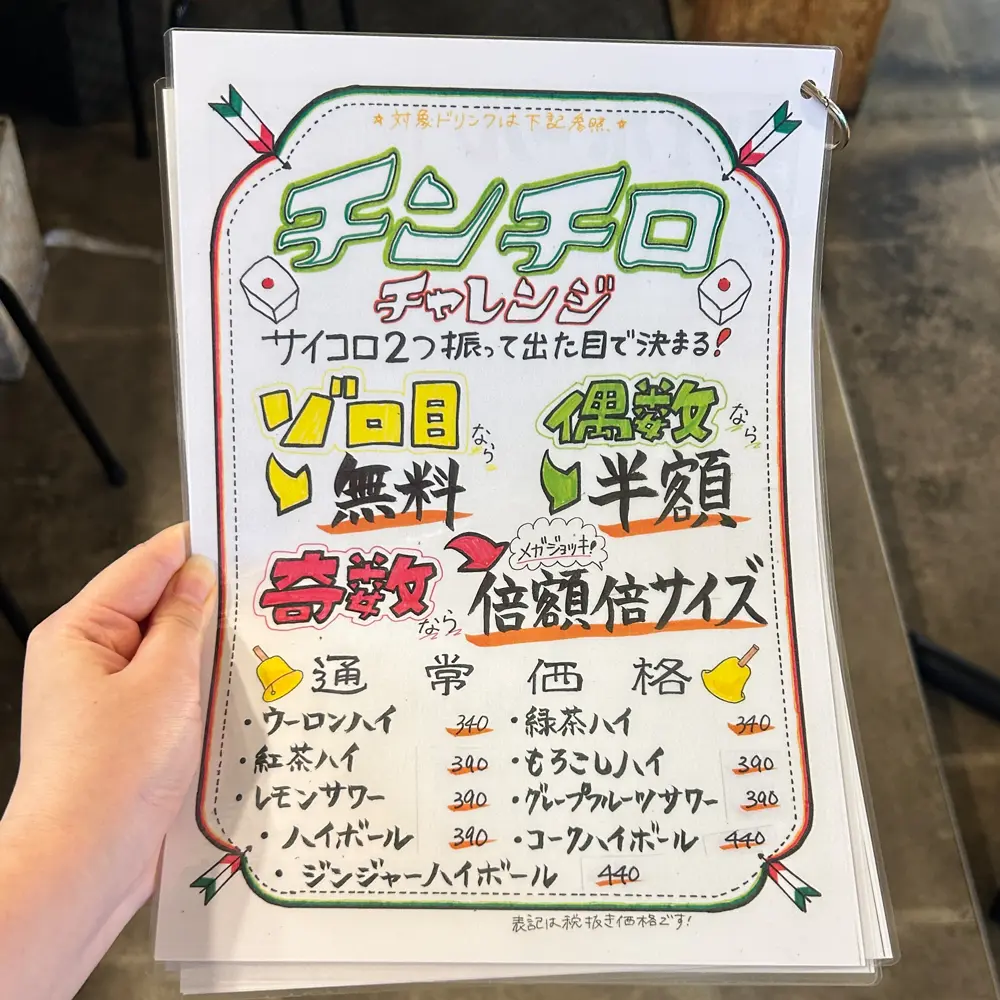 ☆対象ドリンクは下記参照、☆
チンチロ
チャレンジ
サイコロ2つ振って出た目で決まる!
ゾロ目なら
無料
偶数なら
半額
奇数なら
メガジョッキ!
倍額倍サイズ
通常価格
・ウーロンハイ 340 ・緑茶ハイ 340
・紅茶ハイ 390 ・もろこしハイ 390
・レモンサワー 390 ・グレープフルーツサワー 390
・ハイボール 390 ・コークハイボール 440
・ジンジャーハイボール 440
表記は税抜き価格です!